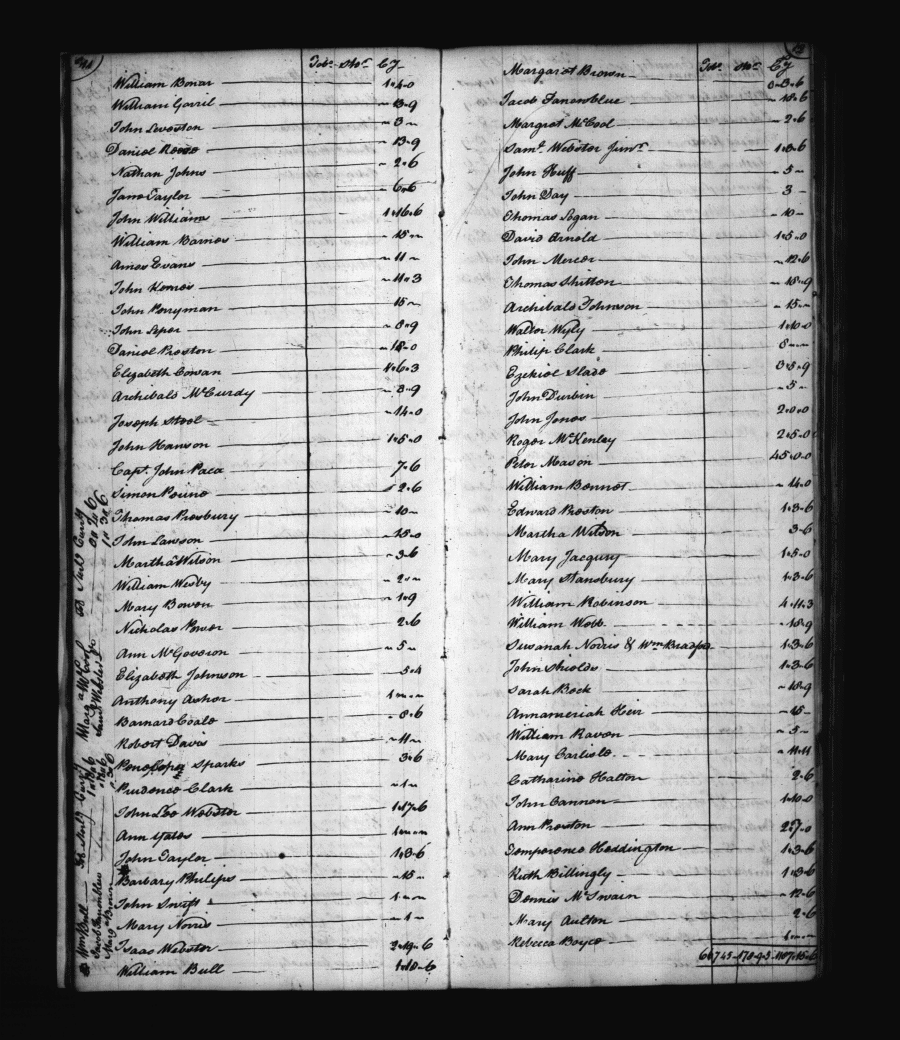 Tobo. Ster. Cy
William Bonar 1"4"0
William Gorril " 13"9
John Leveston " 3 "
Daniel Reese " 13"9
Nathan Johns " 2"6
Jane Taylor " 6"6
John Williams 1"16"6
William Barnes " 15 "
Amos Evans " 11 "
John Kemes " 11"3
John Perryman 15 "
John Leper " 8"9
Daniel Preston " 18"0
Elizabeth Cowan 4"6"3
Archibald McCurdy " 8"9
Joseph Steel " 14"0
John Hanson 1"5"0
Capt. John Paca 7"6
Simon Perine 2"6
Thomas Presbury " 10 "
John Lawson " 15"0
Martha Wilson " 3"6
William Wesby " 2 "
Mary Bowen " 1"9
Nicholas Power 2"6
Ann McGoveron " 5 "
Elizabeth Johnson " 5"4
Anthony Asher 1 " "
Barnard Coale " 8"6
Robert Davis " 11 "
Penelopey Sparks 3"6
Prudence Clark " 1 "
John Lee Webster 1"17"6
Ann Yates 1 " "
John Taylor 1"3"6
Barbary Philips " 15 "
John Swift 1 " "
Mary Norris " 1 "
Isaac Webster 2"19"6
William Bull 1"18"6
Margaret Brown 0"3"6
Jacob Fanonblue " 18"6
Margret McCool " 2"6
Saml. Webster Junr. 1"3"6
John Huff " 5 "
John Day 3 "
Thomas Logan " 10 "
David Arnold 1"5"0
John Mercer " 12"6
Thomas Shitton " 18"9
Archibald Johnson " 15 "
Walter Wyly 1"10"0
Philip Clark 8 " "
Ezekiel Slade 3"5"9
John Durbin " 5 "
John Jones 2"0"0
Roger McKenley 2"5"0
Peter Mason 45"0"0
William Bennet " 14"0
Edward Preston 1"3"6
Martha Wilson 3"6
Mary Jacqury 1"5"0
Mary Stansbury 1"3"6
William Robinson 4"11"3
William Webb " 18"9
Susanah Norris & Wm Bradfo 1"3"6
John Shields 1"3"6
Sarah Beck " 18"9
Annameriah Herr " 15 "
William Raven " 5 "
Mary Carlisle " 11"11
Catharine Halton 2"6
John Cannon 1"10"0
Ann Preston 2"7"0
Temperence Heddington 1"3"6
Ruth Billingly 1"3"6
Dennis McSwain " 12"6
Mary Aulton 2"6
Rebecca Boyce 1 " "